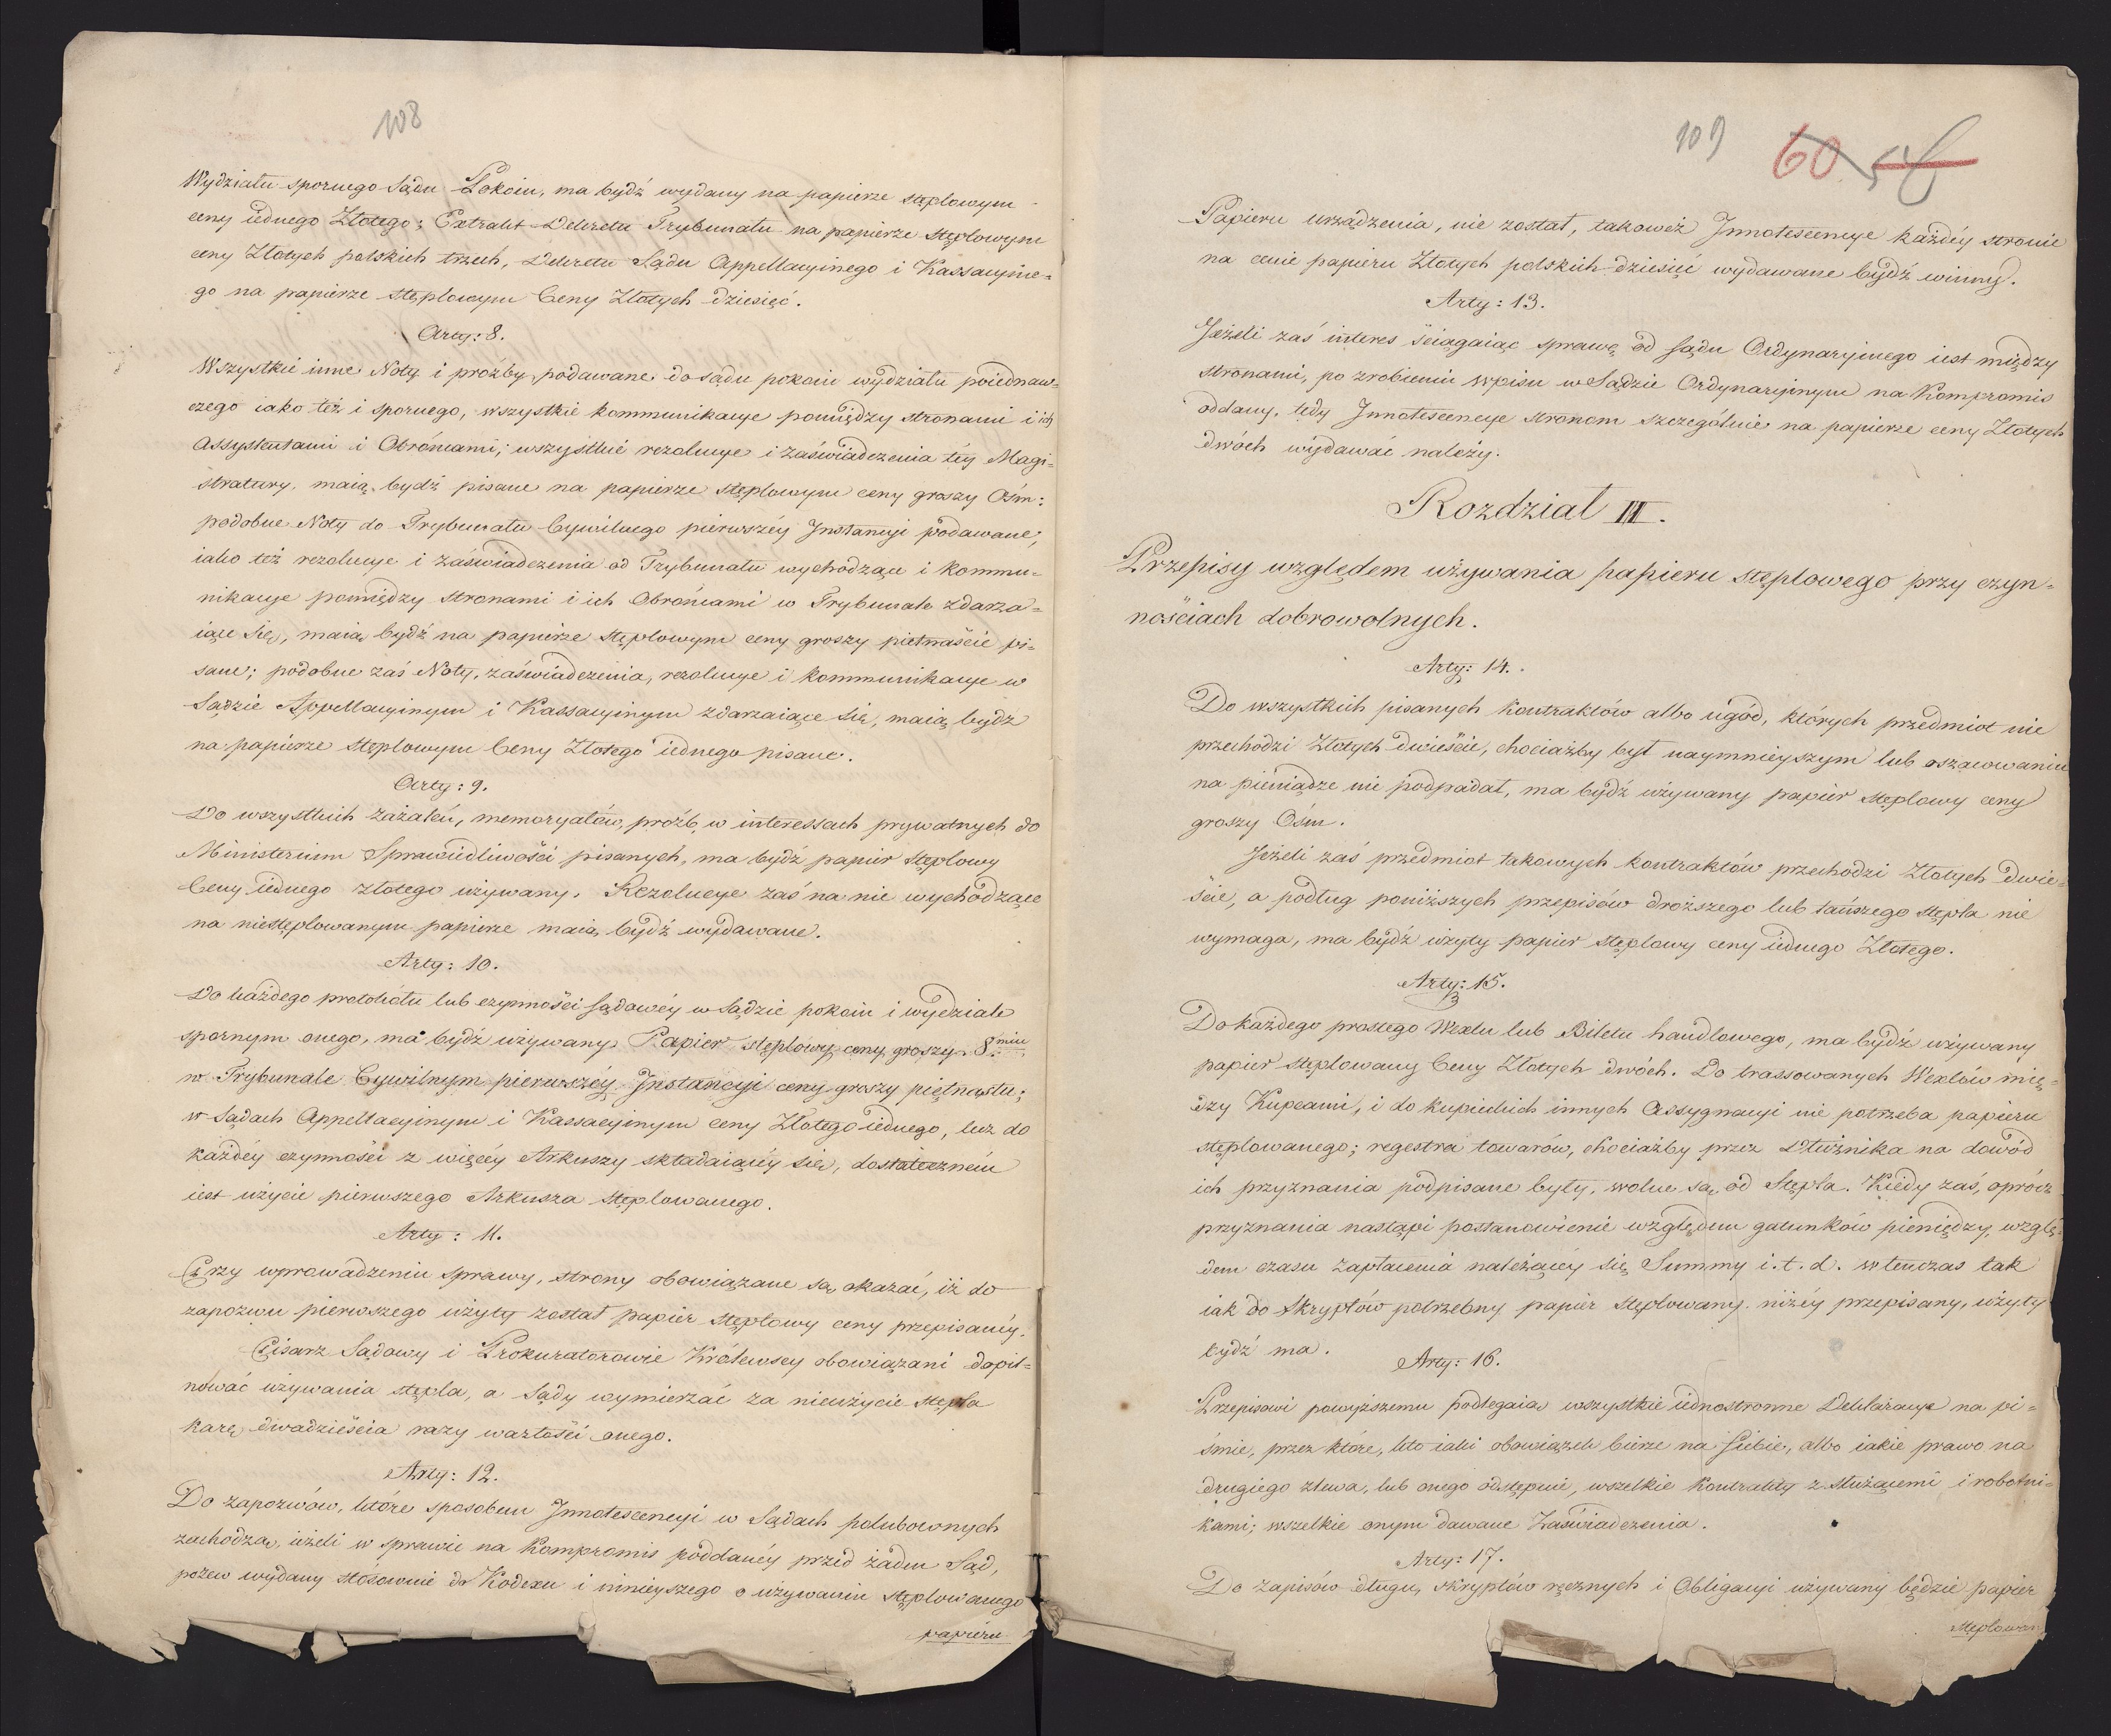 108
Wydziału spornego Sądu Pokoiu, ma bydź wydany na papierze stęplowym
ceny iednego Złotego; Extrakt Dekretu Trybunału na papierze stęplowym
ceny Złotych polskich trzech, Dekretu Sądu Appellacyinego i Kassacyine=
go na papierze stęplowym Ceny Złotych dziesięć.
Arty: 8.
Wszystkie inne Noty i prośby podawane do sądu pokoiu wydziału poiednaw=
czego iako też i spornego, wszystkie kommunikacye pomiędzy stronami i ich
Assystentami i Obrońcami; wszystkie rezolucye i zaświadczenia téy Magi=
stratury, maią bydź pisane na papierze stęplowym ceny groszy Ośm:
podobne Noty do Trybunału Cywilnego pierwszéy Instancyi podawane,
iako też rezolucye i zaświadczenia od Trybunału wychodzące i kommu=
nikacye pomiędzy stronami i ich Obrońcami w Trybunale zdarza=
iące się, maią bydź na papierze stęplowym ceny groszy piętnaście pi=
sane; podobne zaś Noty, zaświadczenia, rezolucye i kommunikacye w
Sądzie Appellacyinym i Kassacyinym zdarzaiące się, maią bydź
na papierze stęplowym Ceny Złotego iednego pisane.
Arty: 9.
Do wszystkich zażaleń, memoryałów, próźb, w interessach prywatnych do
Ministerium Sprawiedliwości pisanych, ma bydź papier stęplowy
Ceny iednego złotego używany. Rezolucye zaś na nie wychodzące
na niestęplowanym papierze maią bydź wydawane.
Arty: 10.
Do każdego protokółu lub czynności sądowéy w Sądzie pokoiu i wydziale
spornym onego, ma bydź używany Papier stęplowy ceny groszy 8miu
w Trybunale Cywilnym pierwszéy Instancyi ceny groszy piętnastu;
w Sądach Appellacyinym i Kassacyinym ceny Złotego iednego, lecz do
każdéy czynności z więcéy Arkuszy składaiącéy się, dostateczném
iest użycie pierwszego Arkusza stęplowanego.
Arty: 11.
Przy wprowadzeniu sprawy, strony obowiązane są okazać, iż do
zapozwu pierwszego użyty został papier stęplowy ceny przepisanéy.
Pisarz Sądowy i Prokuratorowie Królewscy obowiązani dopil=
nować używania stępla, a Sądy wymierzać za nieużycie stępla
karę dwadzieścia razy wartości onego.
Arty: 12.
Do zapozwów, które sposobem Innotescencyi w Sądach polubownych
zachodzą, ieżeli w sprawie na Kompromis poddanéy przed żaden Sąd,
pozew wydany stósownie do Kodexu i ninieyszego o używaniu stęplowanego
papieru
109 60 58
Papieru urządzenia, nie został, takoweż Innotescencye każdéy stronie
na cenie papieru Złotych polskich dziesięć wydawane bydź winny.
Arty: 13.
Jeżeli zaś interes ściągaiąc sprawę od sądu Ordynaryinego iest między
stronami, po zrobieniu wpisu w Sądzie Ordynaryinym na Kompromis
oddany, tedy Innotescencye stronom szczególnie na papierze ceny Złotych
dwóch wydawać należy.
Rozdział III.
Przepisy względem używania papieru stęplowego przy czyn=
nościach dobrowolnych.
Arty: 14.
Do wszystkich pisanych kontraktów albo ugód, których przedmiot nie
przechodzi Złotych dwieście, chociażby był naymnieyszym lub oszacowaniu
na pieniądze nie podpadał, ma bydź używany papier stęplowy ceny
groszy Ośm.
Jeżeli zaś przedmiot takowych kontraktów przechodzi Złotych dwie=
ście, a podług poniższych przepisów droższego lub tańszego stępla nie
wymaga, ma bydź użyty papier stęplowy ceny iednego Złotego.
Arty: 15.
Do każdego prostego Wexlu lub Biletu handlowego, ma bydź używany
papier stęplowany Ceny Złotych dwóch. Do trassowanych Wexlów mię=
dzy Kupcami, i do kupieckich innych Assygnacyi nie potrzeba papieru
stęplowanego; regestra towarów, chociażby przez Dłużnika na dowód
ich przyznania podpisane były, wolne są od Stępla. Kiedy zaś, oprócz
przyznania nastąpi postanowienie względem gatunków pieniędzy, wzglę=
dem czasu zapłacenia należącéy się Summy i.t.d. wtenczas tak
iak do skryptów potrzebny papier stęplowany niżéy przepisany, użyty
bydź ma.
Arty: 16.
Przepisowi powyższemu podlegaią wszystkie iednostronne Deklaracye na pi=
śmie, przez które, kto iaki obowiązek bierze na siebie, albo iakie prawo na
drugiego zlewa, lub onego odstępuie, wszelkie kontrakty z służącemi i robotni=
kami; wszelkie onym dawane Zaświadczenia.
Arty: 17.
Do zapisów długu, skryptów ręcznych i Obligacyi używany będzie papier
stęplowan